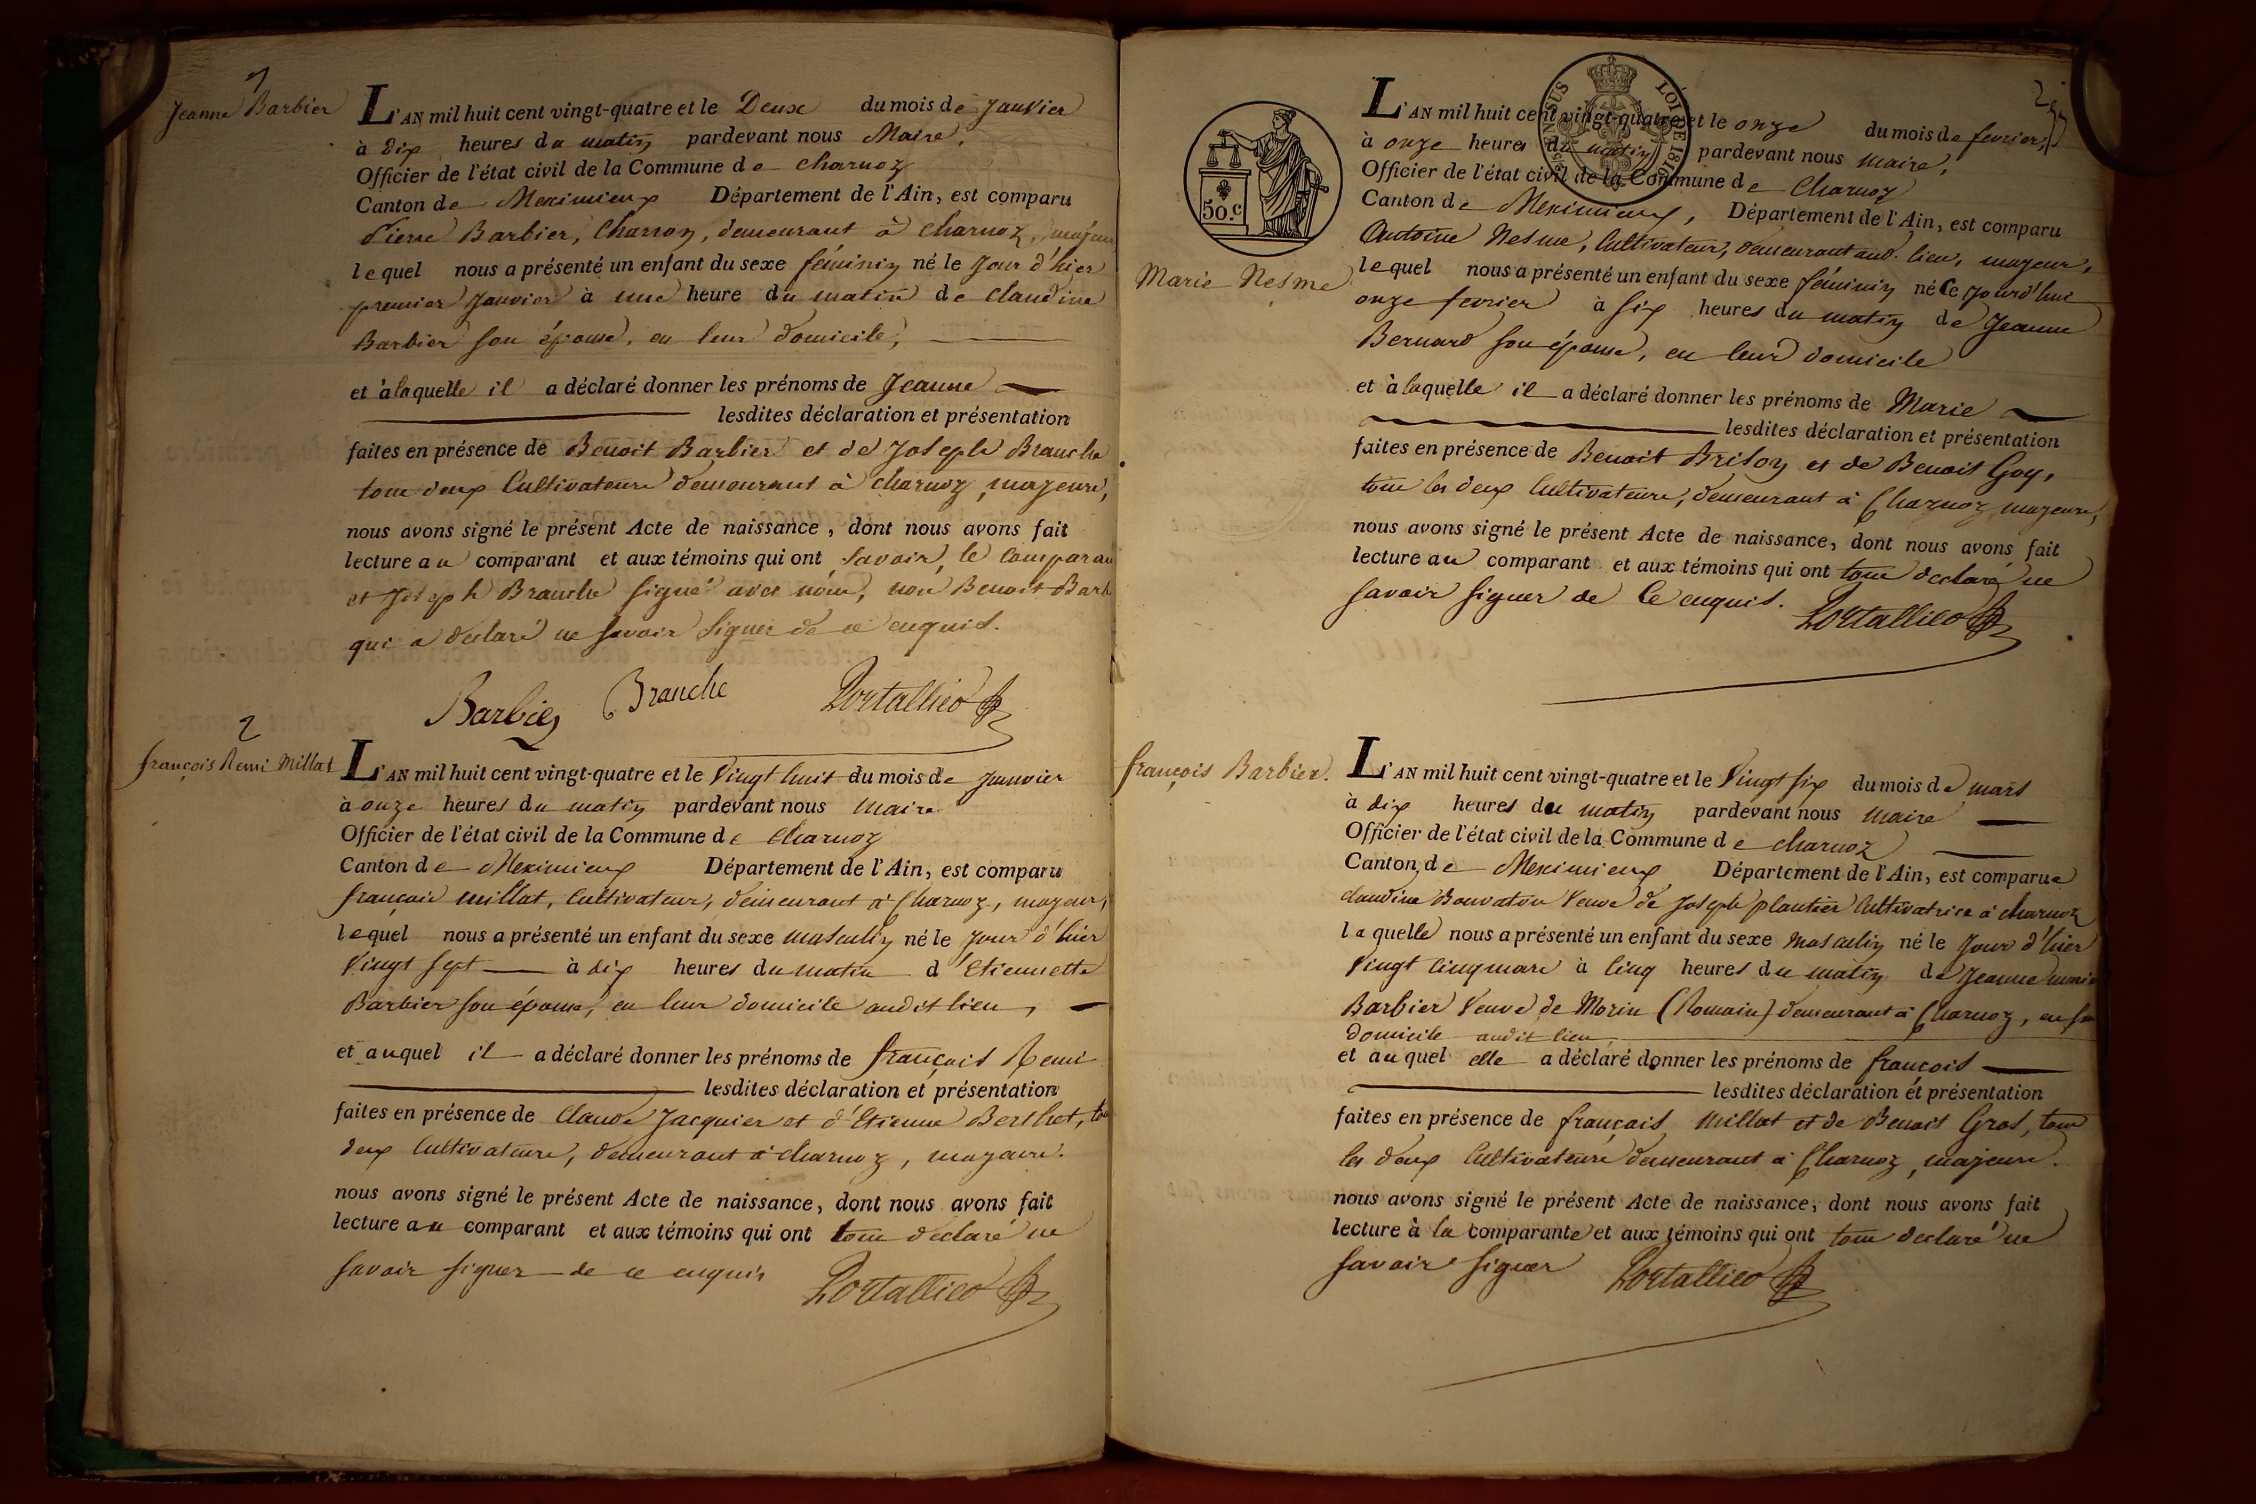 1
Jeanne Barbier
L'AN mil huit cent vingt-quatre et le Deux du mois de Janvier
à dix heures du matin pardevant nous Maire,
Officier de l'état civil de la Commune de Charnoz
Canton de Meximieux Département de l'Ain, est comparu
Pierre Barbier, Charron, demeurant à Charnoz, majeur
lequel nous a présenté un enfant du sexe féminin né le Jour d'hier
premier Janvier à une heure du matin de Claudine
Barbier son épouse, en leur domicile,
et à laquelle il a déclaré donner les prénoms de Jeanne
lesdites déclaration et présentation
faites en présence de Benoit Barbier et de Joseph Branche
tous deux Cultivateurs demeurant à Charnoz, majeurs,
nous avons signé le présent Acte de naissance, dont nous avons fait
lecture au comparant et aux témoins qui ont savoir, le Comparan
et Joseph Branche signé avec nous, non Benoit Barb
qui a déclaré ne savoir signer de ce enquis.
Barbier Branche Portallier
2
françois Remi Millat
L'AN mil huit cent vingt-quatre et le Vingt huit du mois de Janvier
à onze heures du matin pardevant nous Maire
Officier de l'état civil de la Commune de Charnoz
Canton de Meximieux Département de l'Ain, est comparu
françois Millat, Cultivateur, demeurant à Charnoz, majeur,
lequel nous a présenté un enfant du sexe masculin né le jour d'hier
Vingt sept à dix heures du matin d'Etiennette
Barbier son épouse, en leur domicile audit lieu,
et auquel il a déclaré donner les prénoms de françois Remi
lesdites déclaration et présentation
faites en présence de Claude Jacquier et d'Etienne Berthet, tous
deux Cultivateurs, demeurant à Charnoz, majeurs.
nous avons signé le présent Acte de naissance, dont nous avons fait
lecture au comparant et aux témoins qui ont tous déclaré ne
savoir signer de ce enquis Portallier
50.c
LOI DE 1816
Marie Nesme
L'AN mil huit cent vingt-quatre et le onze du mois de fevrier,
à onze heures du matin pardevant nous Maire,
Officier de l'état civil de la Commune de Charnoz
Canton de Meximieux, Département de l'Ain, est comparu
Antoine Nesme, Cultivateur, demeurant aud. lieu, majeur,
lequel nous a présenté un enfant du sexe féminin né Ce Jourd'hui
onze fevrier à six heures du matin de Jeanne
Bernard son épouse, en leur domicile
et à laquelle il a déclaré donner les prénoms de Marie
lesdites déclaration et présentation
faites en présence de Benoit Brison et de Benoit Goy,
tous les deux Cultivateurs, demeurant à Charnoz majeurs,
nous avons signé le présent Acte de naissance, dont nous avons fait
lecture au comparant et aux témoins qui ont tous déclaré ne
savoir signer de Ce enquis. Portallier
françois Barbier.
L'AN mil huit cent vingt-quatre et le Vingt six du mois de mars
à dix heures du matin pardevant nous Maire
Officier de l'état civil de la Commune de Charnoz
Canton de Meximieux Département de l'Ain, est comparue
Claudine Bouvaton Veuve de Joseph plantier Cultivatrice à Charnoz
laquelle nous a présenté un enfant du sexe Masculin né le Jour d'hier
Vingt Cinq mars à Cinq heures du matin de Jeanne marie
Barbier Veuve de Morin (Romain) demeurant à Charnoz, en son
domicile audit lieu
et auquel elle a déclaré donner les prénoms de françois
lesdites déclaration et présentation
faites en présence de français Millat et de Benoit Gros, tous
les deux Cultivateurs demeurant à Charnoz, majeurs.
nous avons signé le présent Acte de naissance, dont nous avons fait
lecture à la comparante et aux témoins qui ont tous déclaré ne
savoir signer Portallier